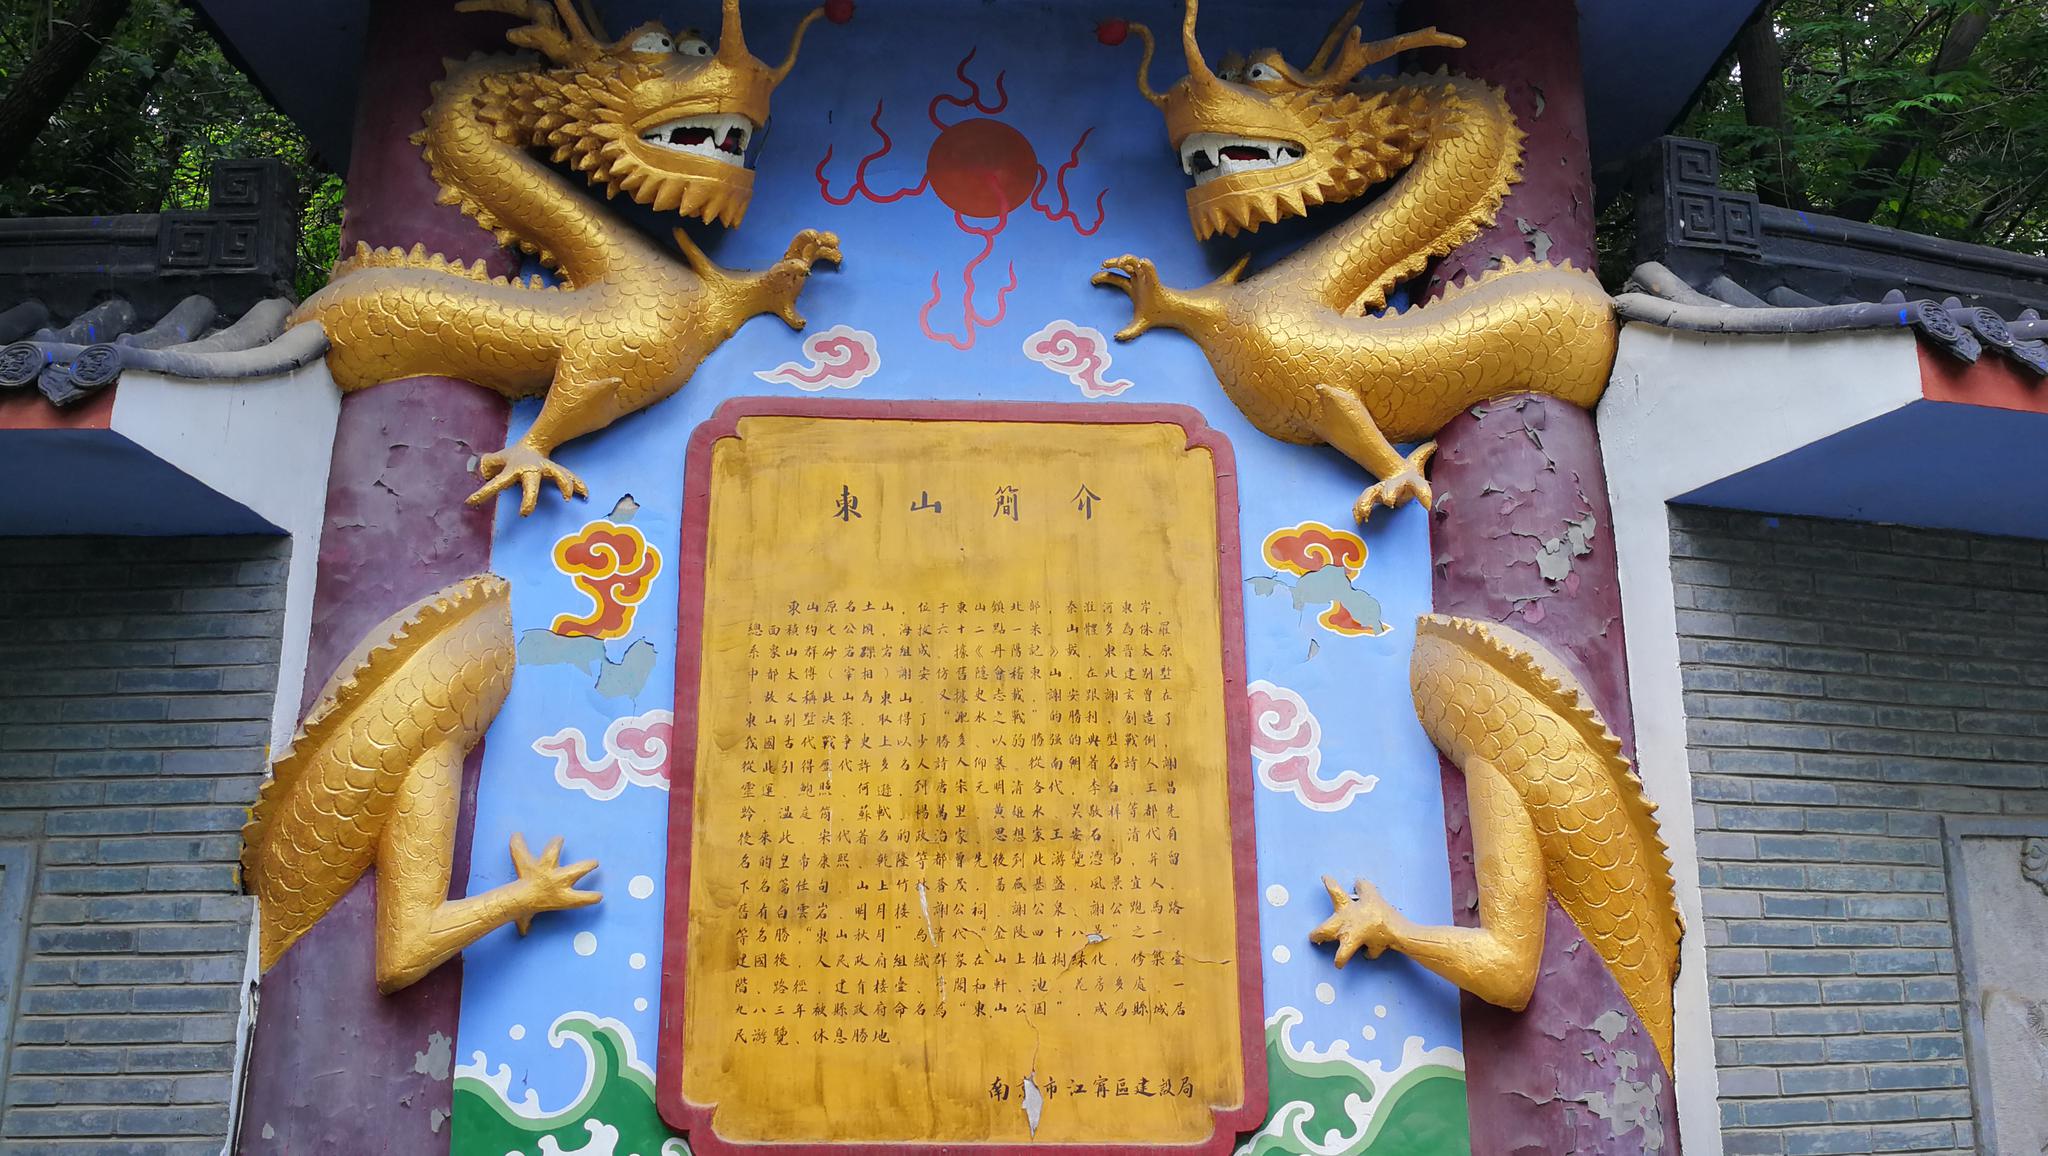 東山簡介
東山原名土山，位于東山鎮北部，秦淮河東岸，
總面積約七公頃，海拔六十二點一米，山體多為侏羅
系象山群砂岩礫岩組成，據《丹陽記》載，東晋太原
中都太傅（宰相）謝安仿舊隱會稽東山，在此建别墅
，故又稱此山為東山，又據史志載，謝安跟謝玄曾在
東山别墅决策，取得了“淝水之戰”的勝利，創造了
我國古代戰争史上以少勝多、以弱勝强的典型戰例，
從此引得歷代許多名人詩人仰慕，從南朝著名詩人謝
靈運、鮑照、何遜，到唐宋元明清各代，李白、王昌
齡、温庭筠、蘇軾、楊萬里、黄姬水、吴敬梓等都先
後來此，宋代著名的政治家、思想家王安石，清代有
名的皇帝康熙、乾隆等都曾先後到此游覽憑吊，并留
下名篇佳句，山上竹林蒼茂，葛藤甚盛，風景宜人，
舊有白雲岩、明月樓、謝公祠、謝公泉、謝公跑馬路
等名勝，“東山秋月”為清代“金陵四十八景”之一，
建國後，人民政府組織群衆在山上植樹緑化，修築臺
階、路徑，建有樓臺、亭閣和軒、池、花房多處，一
九八三年被縣政府命名為“東山公園”，成為縣城居
民游覽、休息勝地
南京市江寧區建設局